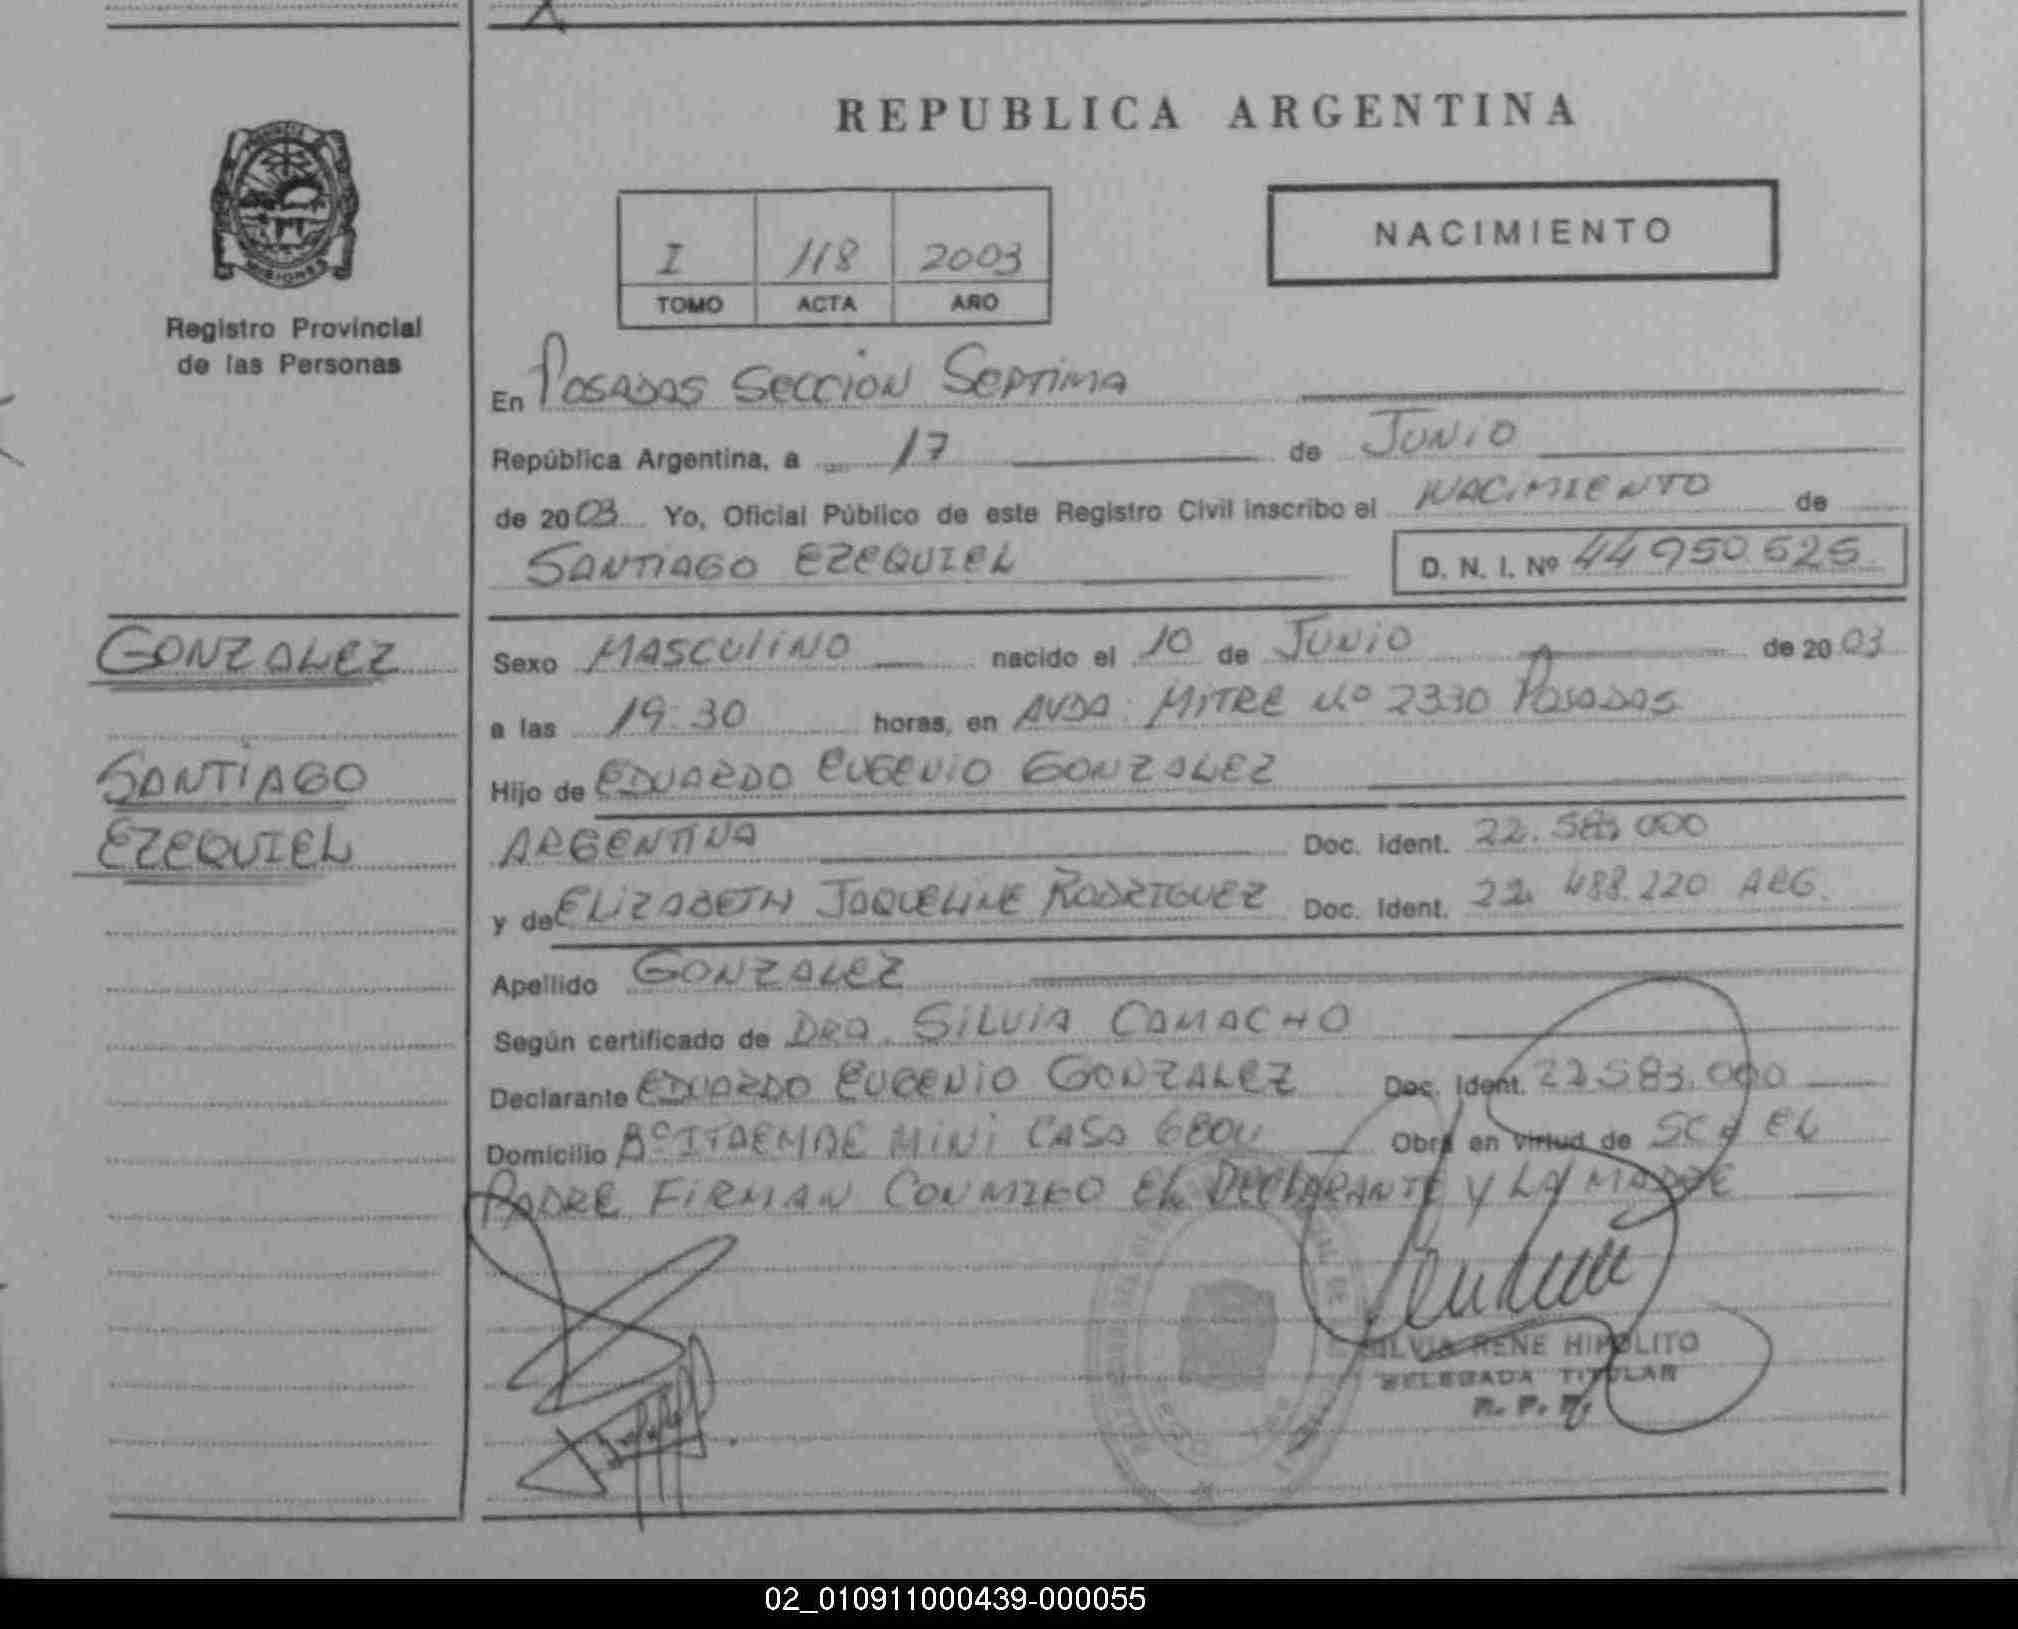 REPUBLICA ARGENTINA
NACIMIENTO
I 118 2003
TOMO ACTA AÑO
MISIONES
Registro Provincial
de las Personas
En POSADAS SECCION SEPTIMA
República Argentina, a 17 de JUNIO
de 2003 Yo, Oficial Público de este Registro Civil inscribo el NACIMIENTO de
SANTIAGO EZEQUIEL D. N. I. Nº 44950.525
GONZALEZ
SANTIAGO
EZEQUIEL
Sexo MASCULINO nacido el 10 de JUNIO de 2003
a las 19:30 horas, en AVDA. MITRE Nº 2330 POSADAS
Hijo de EDUARDO EUGENIO GONZALEZ
ARGENTINA Doc. Ident. 22.583.000
y de ELIZABETH JAQUELINE RODRIGUEZ Doc. Ident. 22.488.220 ARG.
Apellido GONZALEZ
Según certificado de DRA. SILVIA CAMACHO
Declarante EDUARDO EUGENIO GONZALEZ Doc. Ident. 22.583.000
Domicilio Bº ITAEMBE MINI CASA Obra en virtud de SER EL
PADRE FIRMAN CONMIGO EL DECLARANTE Y LA MADRE
SILVIA RENE HIPOLITO
DELEGADA TITULAR
R. P. P.
02_010911000439-000055